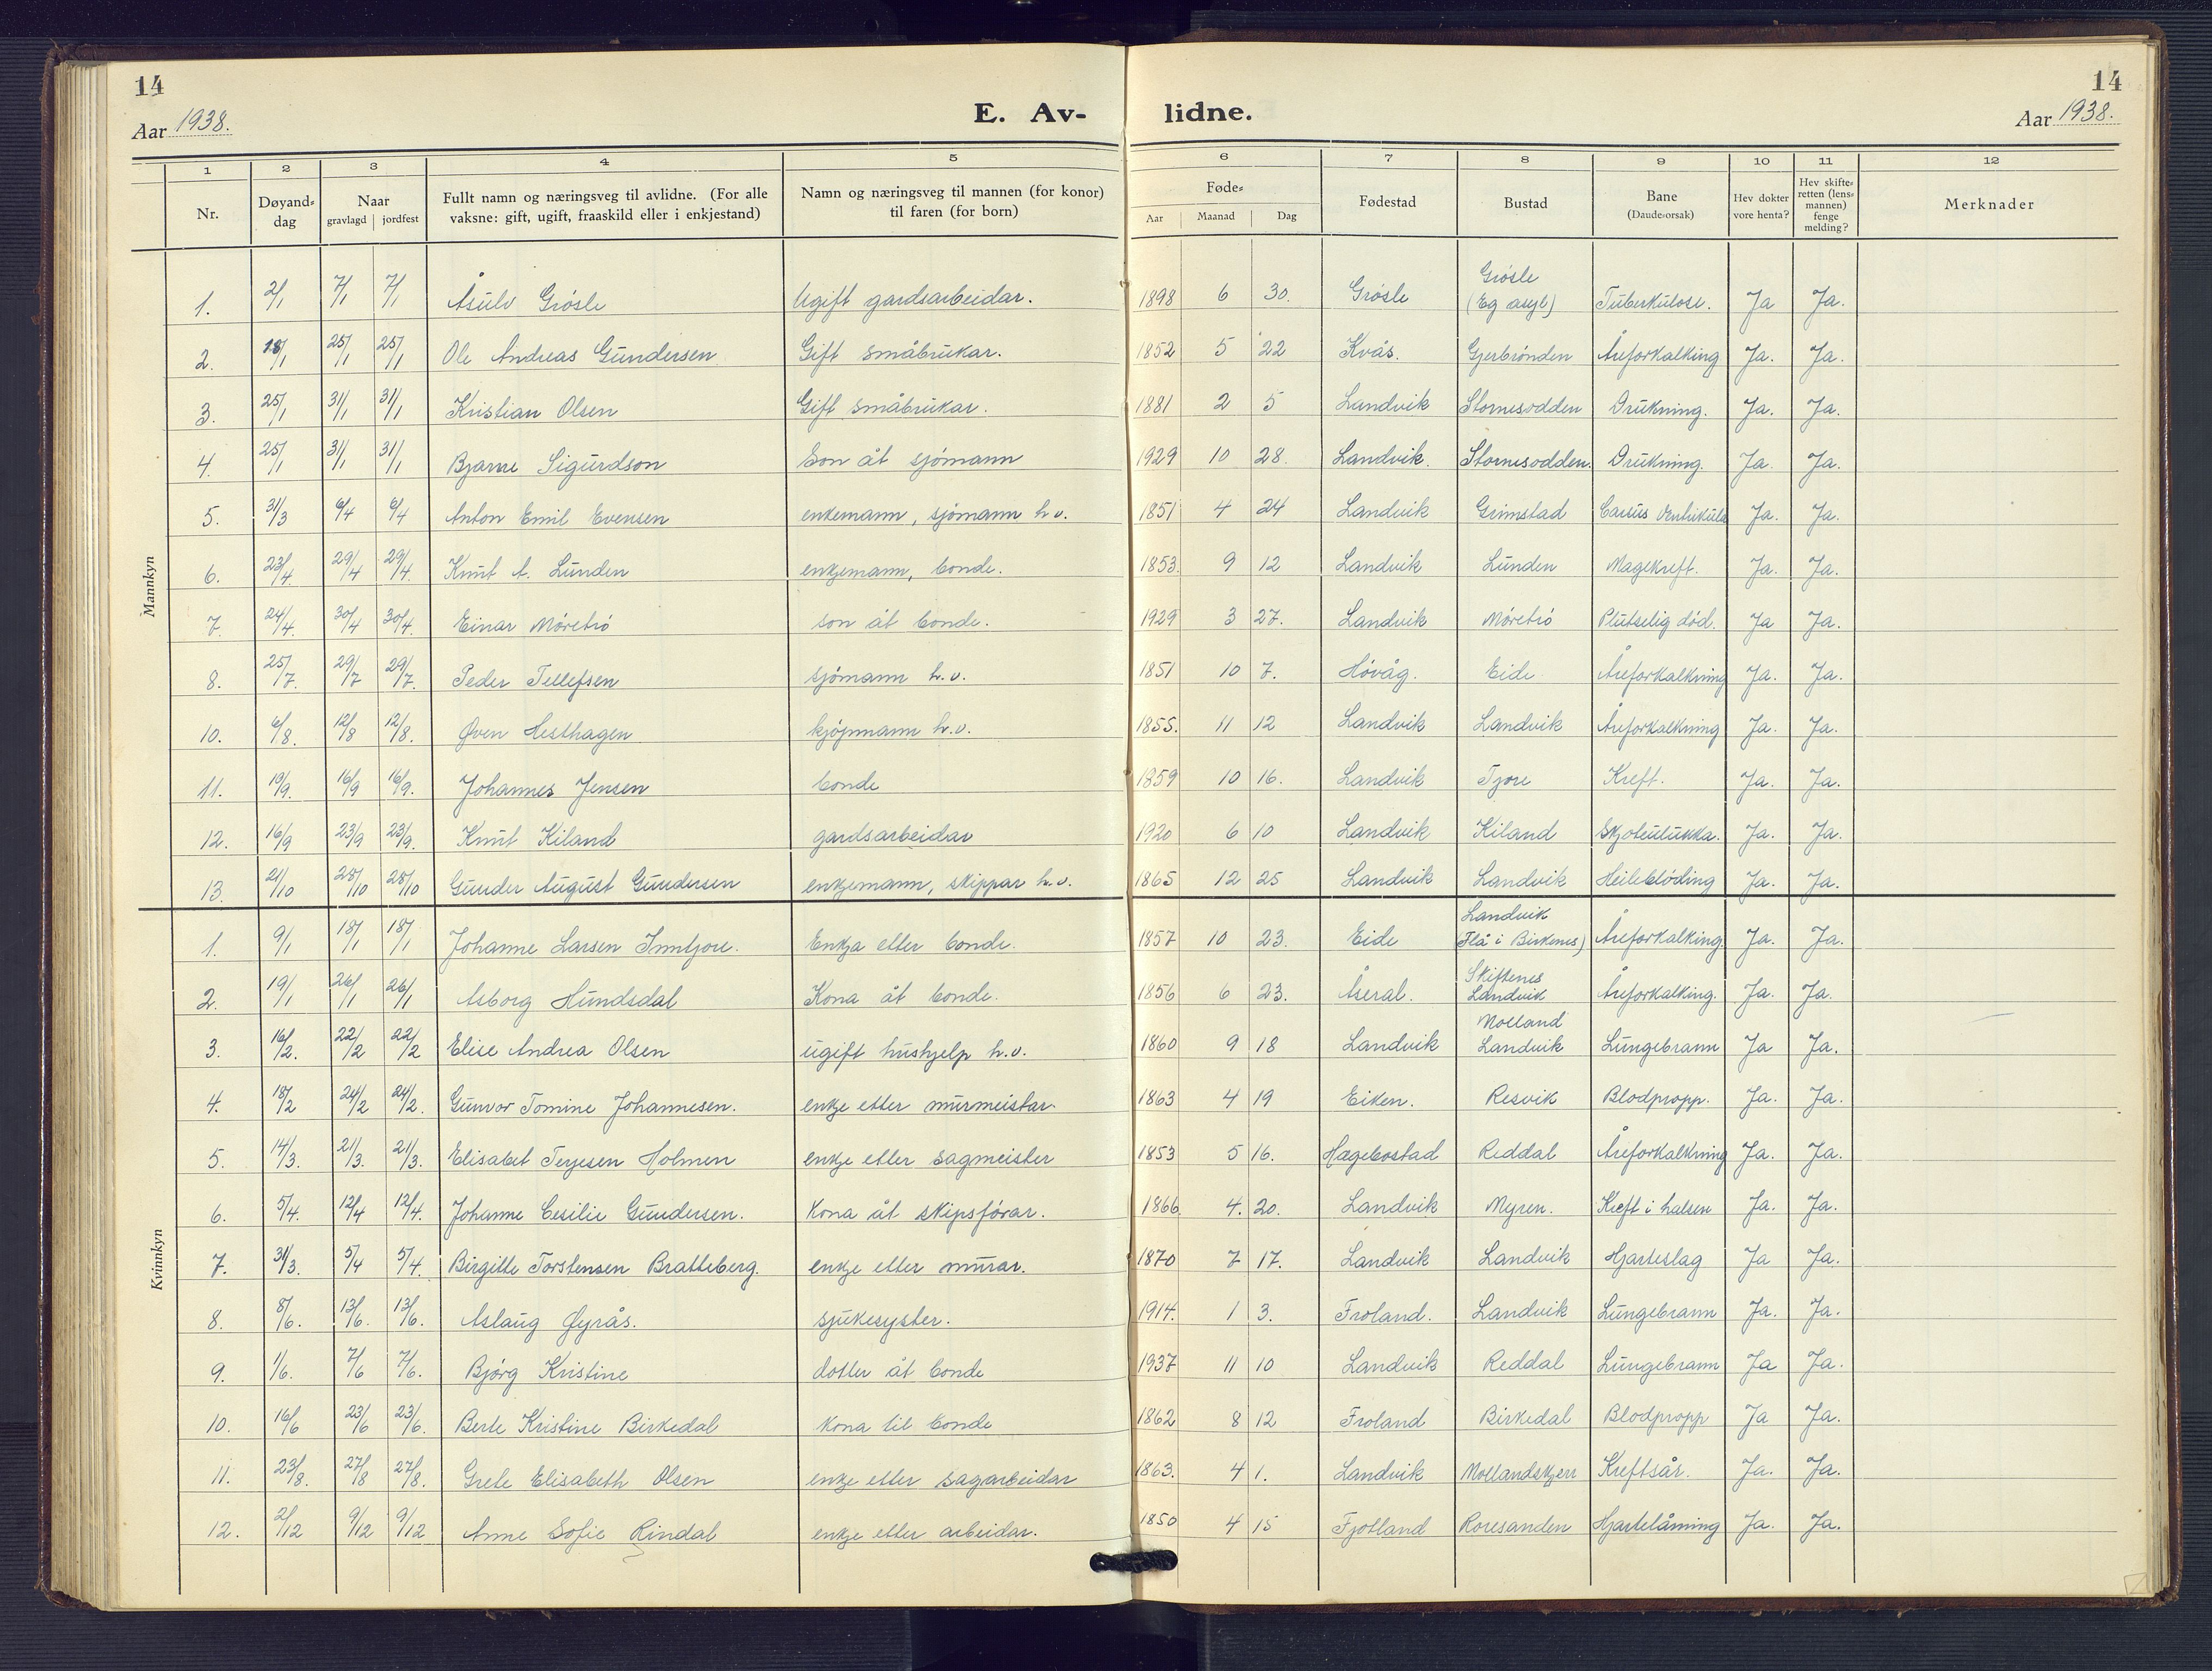 14
14
Aar 1938.
E. Av- lidne.
Aar 1938.
1 2 3 4 5 6 7 8 9 10 11 12
Nr.
Døyand-dag
Naar
gravlagd | jordfest
Fullt namn og næringsveg til avlidne. (For alle
vaksne: gift, ugift, fraaskild eller i enkjestand)
Namn og næringsveg til mannen (for konor)
til faren (for born)
Føde-
Aar Maanad Dag
Fødestad
Bustad
Bane
(Daude-orsak)
Hev dokter
vore henta?
Hev skifte-
retten (lens-
mannen)
fenge
melding?
Merknader
Mannkyn
1. 2/1 7/1 7/1 Åsulv Grósle Ugift gardsarbeidar. 1898 6 30. Grósle Grósle (Eg asyl) Tuberkulose. Ja Ja.
2. 18/1 25/1 25/1 Ole Andreas Gundersen Gift småbrukar. 1852 5 22 Kvås. Gjerbrónden Åreforkalking Ja. Ja.
3. 25/1 31/1 31/1 Kristian Olsen Gift småbrukar. 1881 2 5 Landvik Stornesodden Drukning. Ja. Ja.
4. 25/1 31/1 31/1 Bjarne Sigurdson Son åt sjómann 1929 10 28. Landvik. Stornesodden. Drukning. Ja. Ja.
5. 31/3 6/4 6/4 Anton Emil Evensen enkemann, sjómann h.v. 1851 4 24 Landvik Grimstad Ja. Ja.
6. 23/4 29/4 29/4. Knut A. Lunden enkjemann, bonde. 1853. 9 12 Landvik Lunden Magekreft. Ja. Ja.
7. 24/4. 30/4 30/4. Einar Móretró son åt bonde. 1929 3 27. Landvik Móretró Plutselig dód. Ja Ja.
8. 25/7. 29/7 29/7. Peder Tellefsen sjómann h.v. 1851 10 7. Hóvåg. Eide Åreforkalkning Ja. Ja.
10. 6/8. 12/8 12/8. Øven Hesthagen kjópmann h.v. 1855. 11 12 Landvik Landvik Åreforkalkning Ja. Ja.
11. 19/9. 16/9 16/9. Johannes Jensen bonde 1859 10 16. Landvik Tjore Kreft. Ja. Ja.
12. 16/9 23/9 23/9. Knut Kiland gardsarbeidar 1920 6 10 Landvik Kiland Skoteulukka. Ja. Ja.
13. 21/10 28/10 28/10 Gunder August Gundersen enkjemann, skippar h.v. 1865 12 25 Landvik Landvik Heileblóding Ja. Ja.
Kvinnkyn
1. 9/1 18/1 18/1 Johanne Larsen Inntjore. Enkja etter bonde. 1857 10 23. Eide Landvik (Flå i Birkenes) Åreforkalking. Ja. Ja.
2. 19/1 26/1 26/1 Asborg Hundsdal Kona åt bonde. 1856 6 23. Åseral. Skiftenes Landvik Åreforkalking. Ja. Ja.
3. 16/2. 22/2 22/2 Elise Andrea Olsen ugift hushjelp h.v. 1860 9 18 Landvik Molland Landvik Lungebrann Ja Ja.
4. 18/2 24/2 24/2. Gunvor Tomine Johannesen. enkje etter murmeistar. 1863 4 19 Eiken. Resvik Blodpropp. Ja. Ja.
5. 14/3. 21/3. 21/3. Elisabet Terjesen Holmen enkje etter sagmeister 1853 5 16. Hægebostad Reddal Åreforkalkning Ja. Ja.
6. 5/4. 12/4 12/4. Johanne Cesilie Gundersen. Kona åt skipsfórar. 1866. 4. 20. Landvik Myren. Kreft i halsen Ja. Ja.
7. 31/3. 5/4 5/4. Birgitte Torstensen Bratteberg. enkje etter murar. 1870 7 17. Landvik Landvik Hjarteslag Ja Ja.
8. 8/6. 13/6. 13/6. Aslaug Øyrås. sjukesyster. 1914. 1 3. Froland. Landvik Lungebrann Ja. Ja.
9. 1/6. 7/6 7/6. Bjórg Kristine dotter åt bonde 1937 11 10 Landvik Reddal Lungebrann Ja Ja.
10. 16/6 23/6 23/6. Berte Kristine Birkedal kona til bonde 1862 8 12 Froland Birkedal Blodpropp Ja Ja.
11. 23/8. 27/8 27/8. Grete Elisabeth Olsen enkje etter sagarbeidar 1863. 4 1. Landvik Mollandskjerr Kreftsår. Ja. Ja.
12. 2/12 9/12 9/12 Anne Sofie Rindal enkje etter arbeidar. 1850 4 15 Fjotland Roresanden Hjartelåming Ja. Ja.